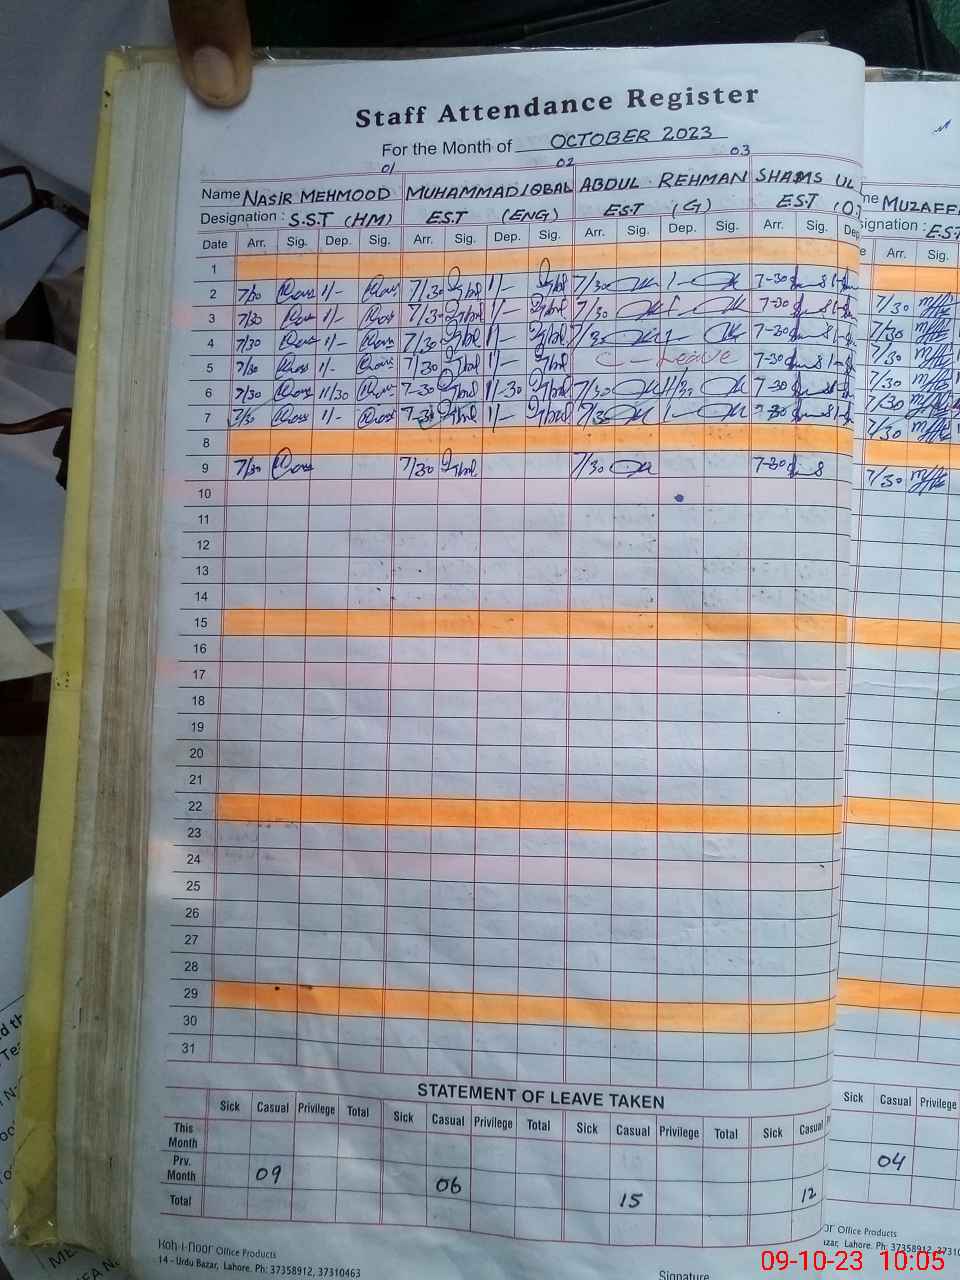 Staff Attendance Register
For the Month of OCTOBER 2023
01 02 03
Name NASIR MEHMOOD MUHAMMAD IQBAL ABDUL REHMAN SHAMS UL me MUZAFF
Designation : S.S.T (HM) E.S.T (ENG) E.S.T (G) E.S.T (O. signation : E.S.T
Date Arr. Sig. Dep. Sig. Arr. Sig. Dep. Sig. Arr. Sig. Dep. Sig. Arr. Sig. Dep e Arr. Sig.
1
2 7/30 1/- 7/30 1/- 7/30 1- 7-30 7/30
3 7/30 1/- 7/3- 1/- 7/30 7-30 7/30
4 7/30 1/- 7/30 1/- 7/30 1- 7-30 7/30
5 7/30 1/- 7/30 1/- C - Leave 7-30 7/30
6 7/30 11/30 7-30 11-30 7/30 11/30 7-30 7/30
7 7/30 1/- 7-30 1/- 7/30 1- 7-30 7/30
8
9 7/30 7/30 7/30 7-30 7/30
10
11
12
13
14
15
16
17
18
19
20
21
22
23
24
25
26
27
28
29
30
31
STATEMENT OF LEAVE TAKEN
Sick Casual Privilege Total Sick Casual Privilege Total Sick Casual Privilege Total Sick Casual Sick Casual Privilege
This Month
Prv. Month 09 06 15 12 04
Total
Koh-i-noor Office Products
14 - Urdu Bazar, Lahore. Ph: 37358912, 37310463
Signature
Office Products
zar, Lahore. Ph: 37358912, 3731
09-10-23 10:05